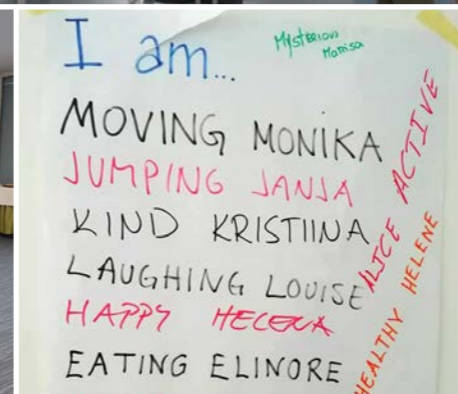 I am...
Mysterious
Marrisa
MOVING MONIKA
JUMPING JANJA
KIND KRISTIINA
LAUGHING LOUISE
HAPPY HELENA
EATING ELINORE
ALICE ACTIVE
HEALTHY HELENE